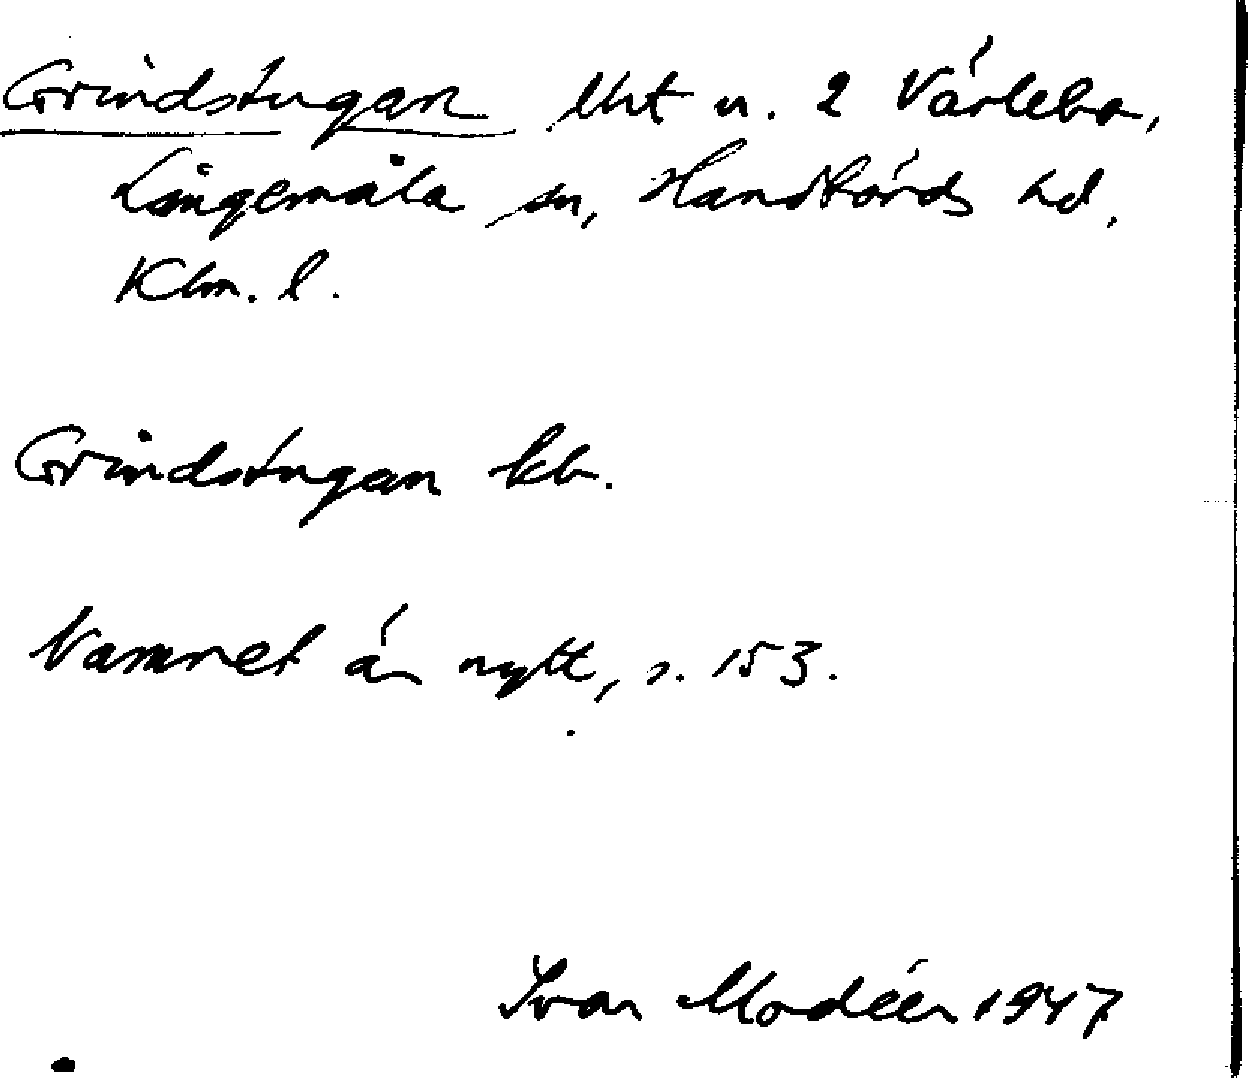 Grindstugan lht u. 2 Värlebo,
Långemåla sn, Handbörds hd.
Klm. l.
Grindstugan kb.
Namnet är nytt, s. 153.
Ivar Modéer 1947